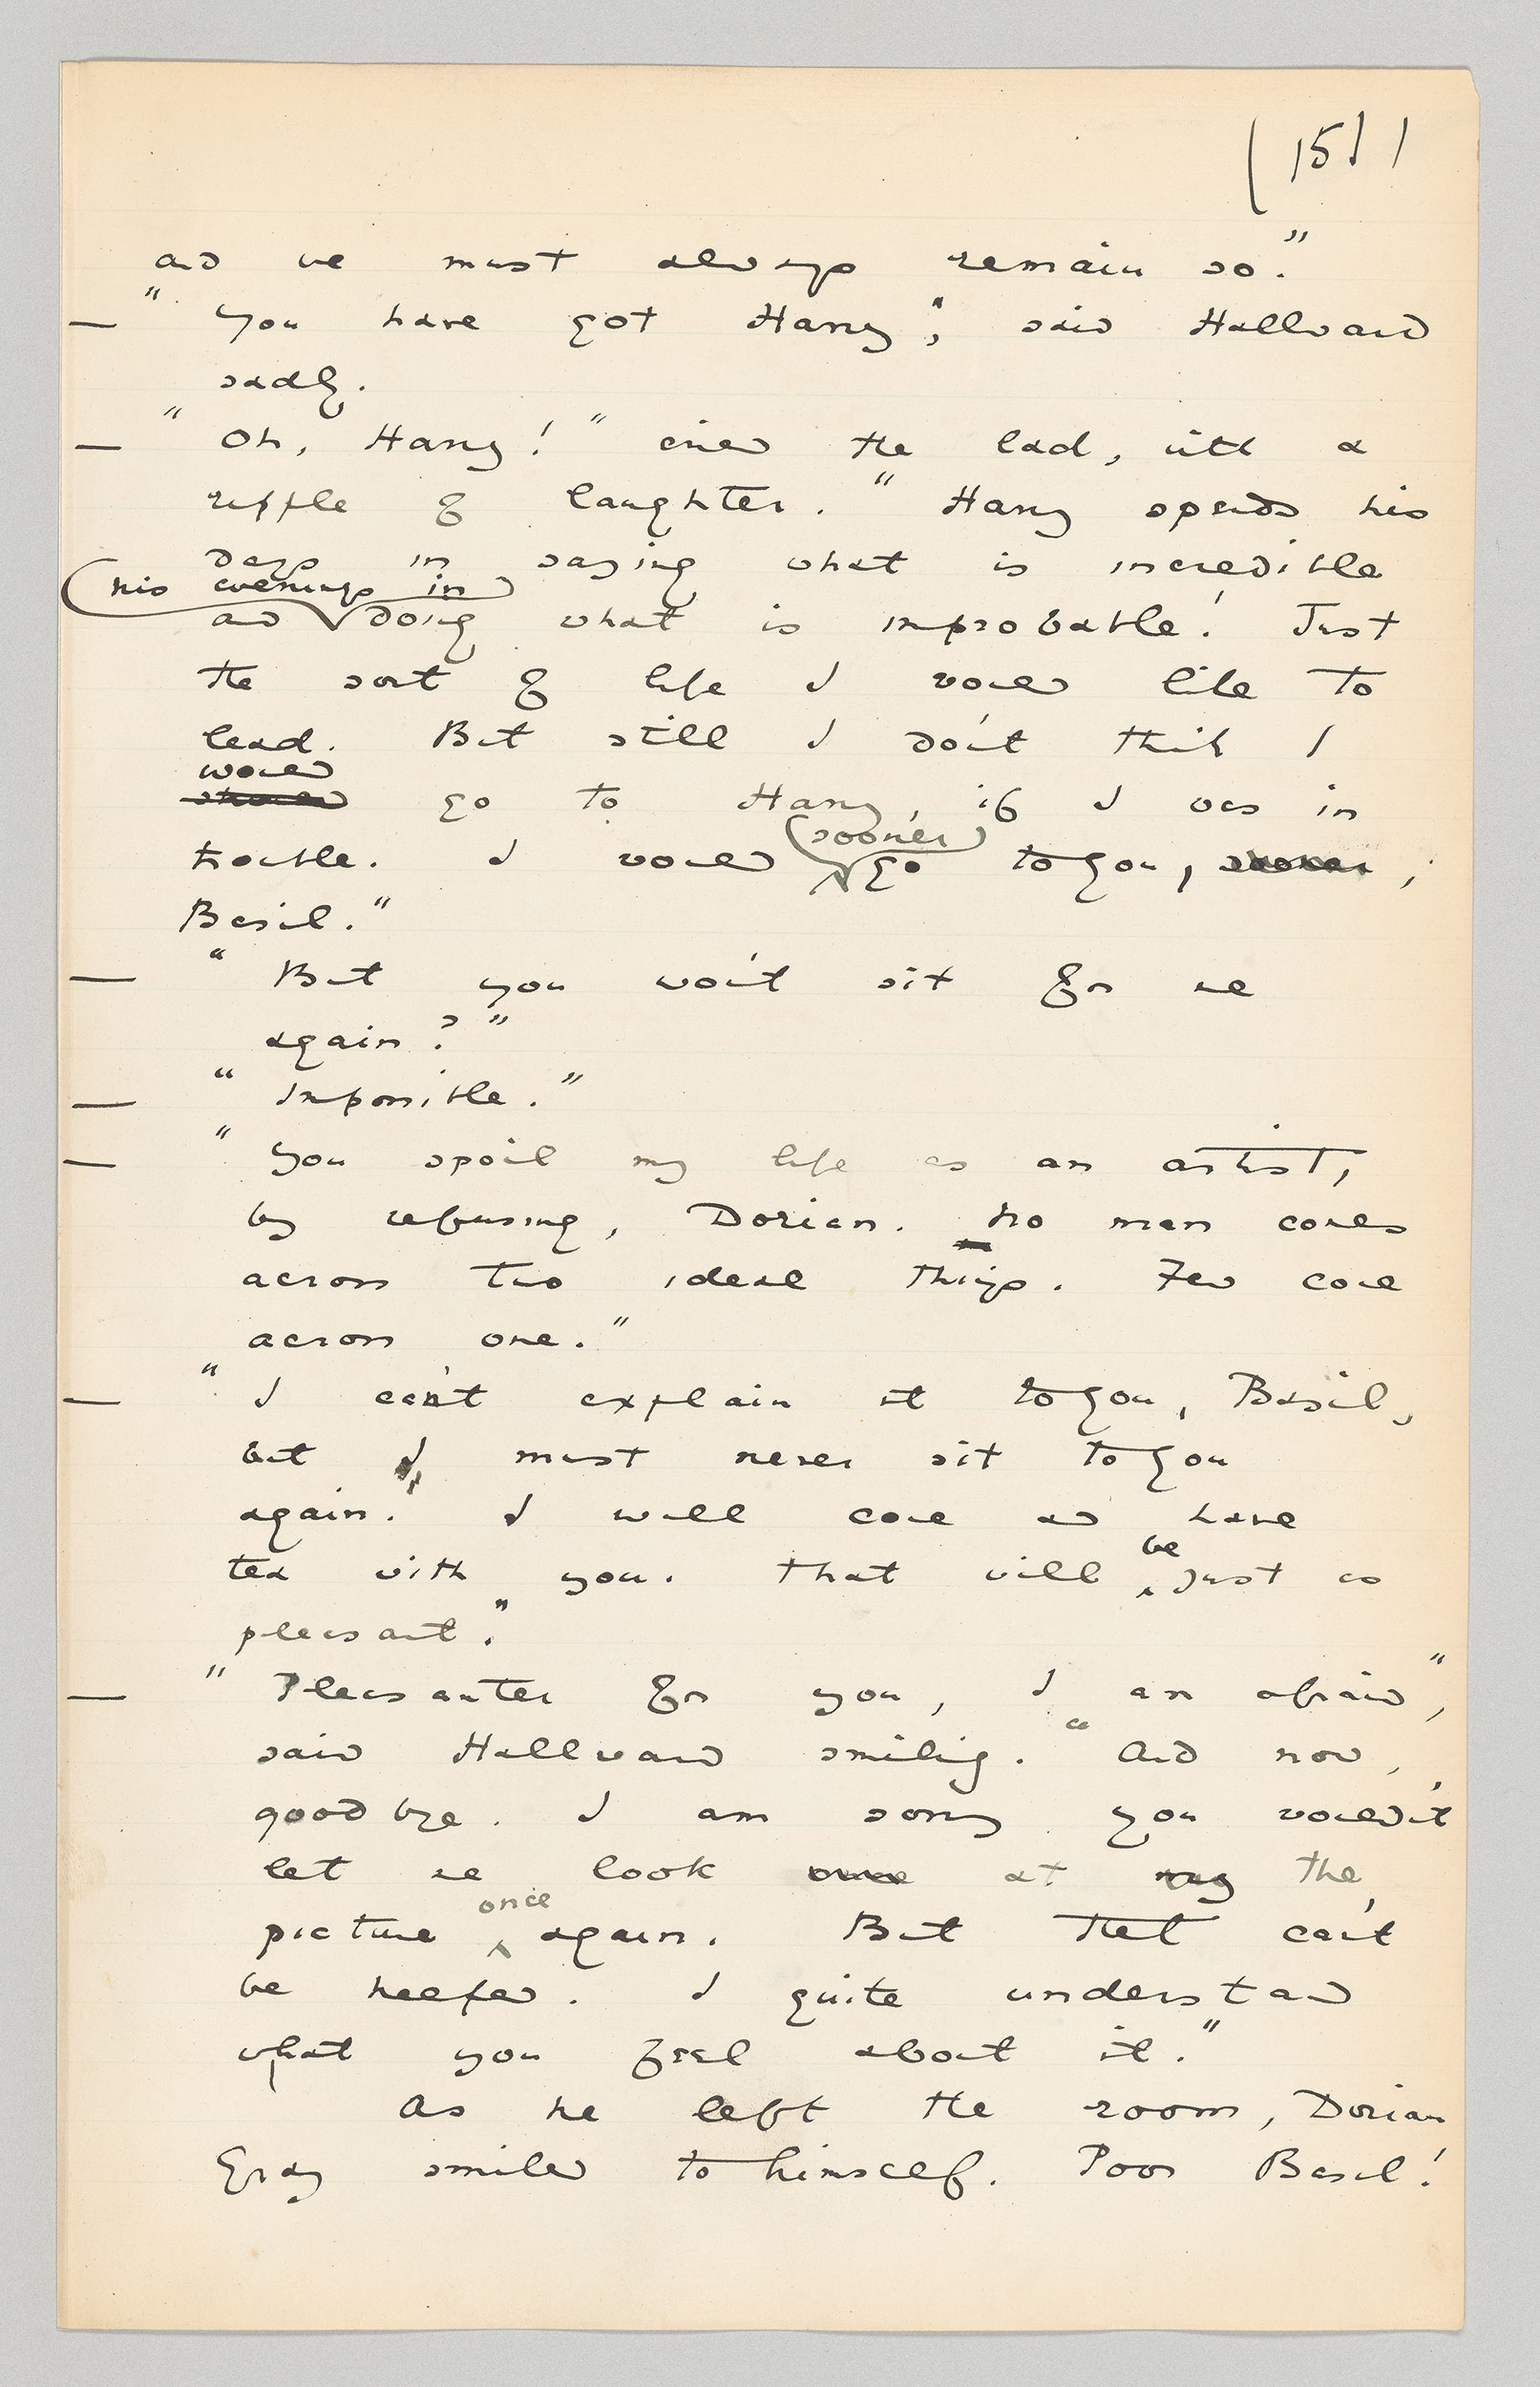 (151)
and we must always remain so."
— "You have got Harry", said Hallward
sadly.
— "Oh, Harry!" cried the lad, with a
ripple of laughter. "Harry spends his
days in saying what is incredible
his evenings in
and doing what is improbable! Just
the sort of life I would like to
lead. But still I don't think I
would
should go to Harry, if I was in
sooner
trouble. I would go to you, sooner,
Basil."
— "But you won't sit for me
again?"
— "Impossible."
— "You spoil my life as an artist,
by refusing, Dorian. No man comes
across two ideal things. Few come
across one."
— "I can't explain it to you, Basil,
but I must never sit to you
again. I will come and have
be
tea with you. That will just as
pleasant."
— "Pleasanter for you, I am afraid",
said Hallward smiling. "And now,
goodbye. I am sorry you wouldn't
let me look once at my the
once
picture again. But that can't
be helped. I quite understand
what you feel about it."
As he left the room, Dorian
Gray smiled to himself. Poor Basil!